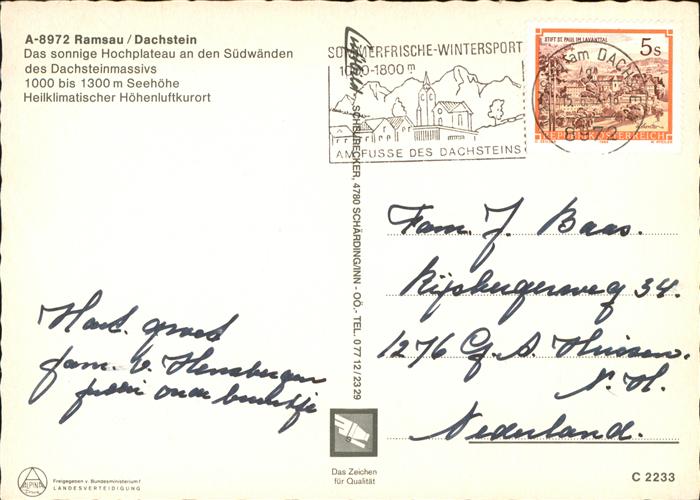 A-8972 Ramsau / Dachstein
Das sonnige Hochplateau an den Südwänden
des Dachsteinmassivs
1000 bis 1300 m Seehöhe
Heilklimatischer Höhenluftkurort
SOMMERFRISCHE-WINTERSPORT
1000-1800 m
AM FUSSE DES DACHSTEINS
STIFT ST. PAUL IM LAVANTTAL
5s
REPUBLIK ÖSTERREICH
SCHEURECKER, 4780 SCHÄRDING/INN - OÖ,- TEL. 077 12 / 23 29
Fam. J. Baas.
1276 
Nederland.
N. H.
Hart. groet
fam. v. Hensbergen
onze
Das Zeichen
für Qualität
ALPINA
Freigegeben v. Bundesministerium f.
LANDESVERTEIDIGUNG
C 2233